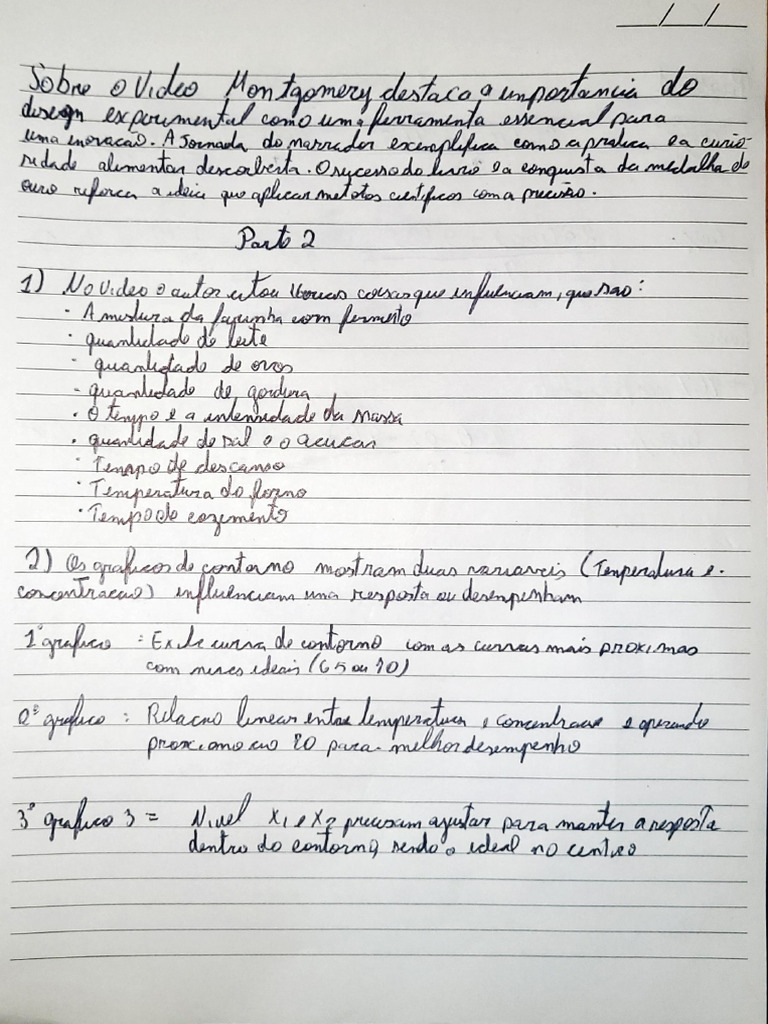 __/__/__
Sobre o Video Montgomery destaca a importancia do
design experimental como uma ferramenta essencial para
uma inovacão. A Jornada do narrador exemplifica como a pratica e a curio-
sidade alimentar descoberta. O sucesso do livro e a conquista da medalha de
ouro reforca a ideia que aplicar metotos cientificos com a precisão.
Parte 2
1) No Video o autor citou várias coisas que influenciam, que são:
· A mistura da farinha com fermento
· quantidade de leite
· quantidade de ovos
- quantidade de gordura
· O tempo e a intensidade da massa
· quantidade de sal e o acucar
· Tempo de descanso
· Temperatura do forno
· Tempo de cozimento
2) Os graficos de contorno mostram duas variaveis (Temperatura e.
concentracao) influenciam uma resposta ou desempenham
1º grafico : Exite curva de contorno com as curvas mais proximas
com niveis ideais (65 ou 70)
2º grafico : Relacao linear entre temperatura e concentracao e operando
proximo ao 80 para melhor desempenho
3º grafico 3 = Nivel x1 e x2 precisam ajustar para manter a resposta
dentro do contorno, sendo o ideal no centro